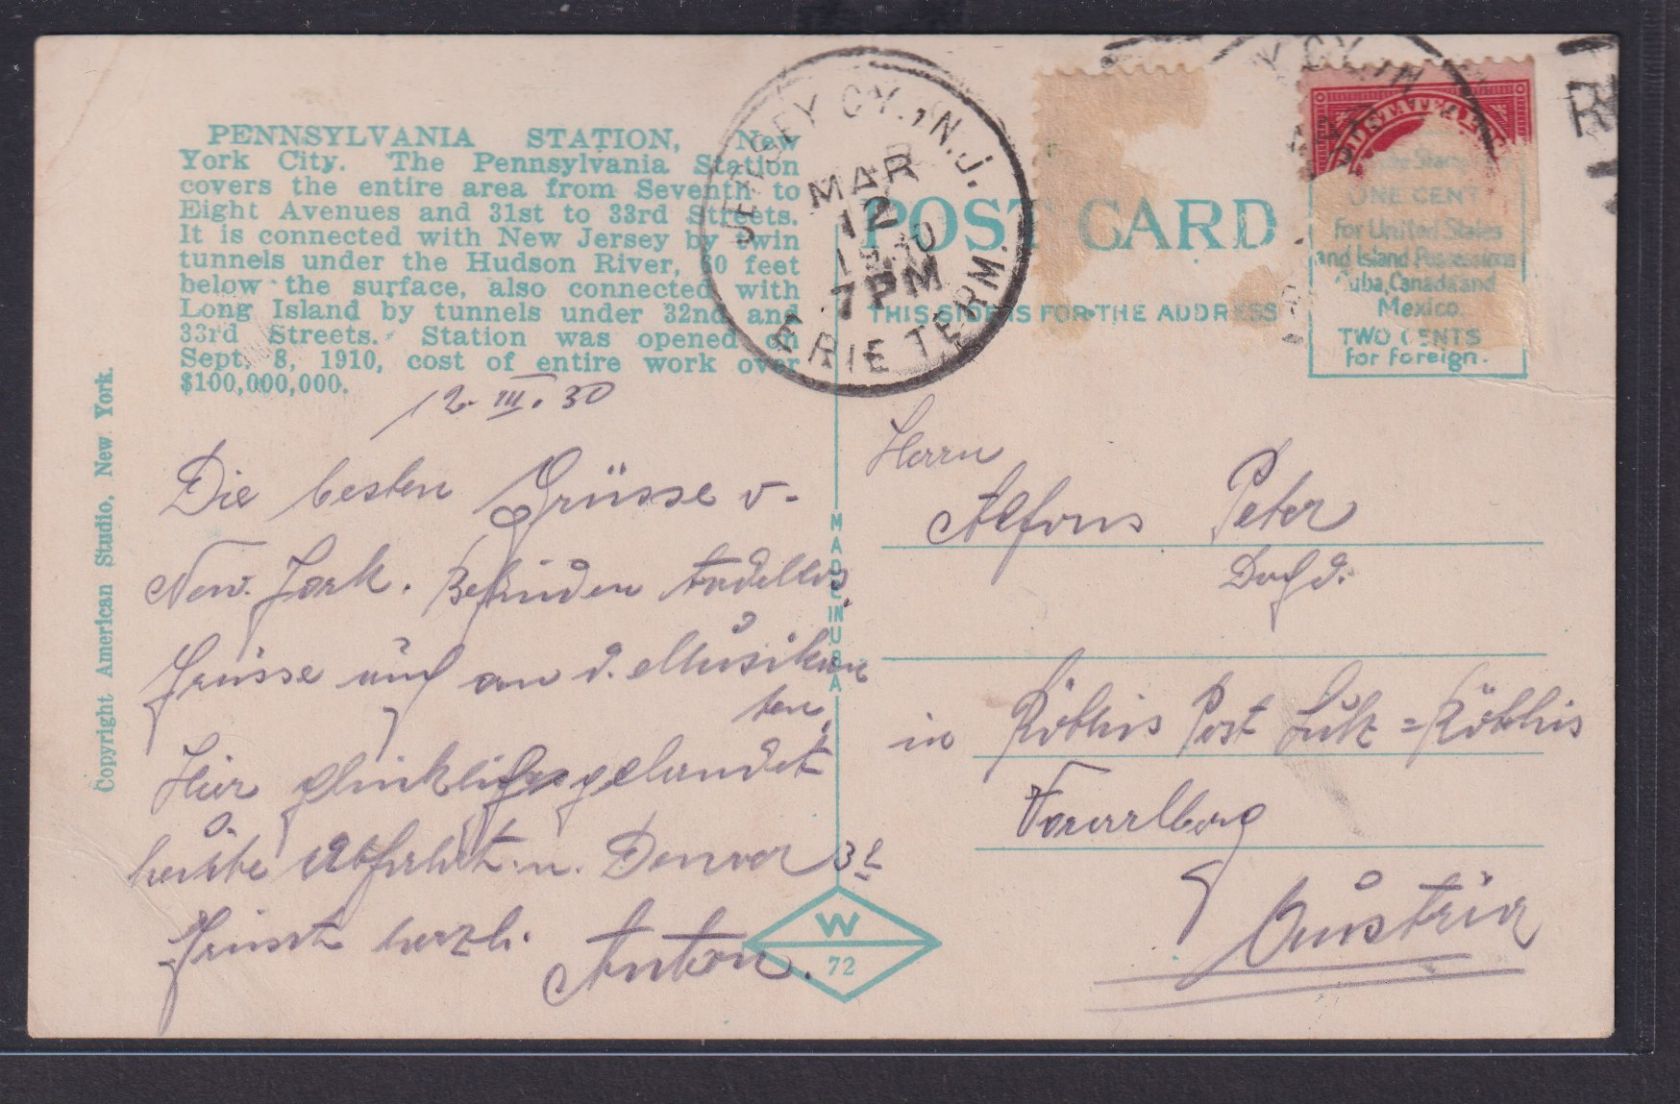 PENNSYLVANIA STATION, New
York City. The Pennsylvania Station
covers the entire area from Seventh to
Eight Avenues and 31st to 33rd Streets.
It is connected with New Jersey by twin
tunnels under the Hudson River, 60 feet
below the surface, also connected with
Long Island by tunnels under 32nd and
33rd Streets. Station was opened on
Sept. 8, 1910, cost of entire work over
$100,000,000.
Copyright American Studio, New York.
12. III. 30
Die besten Grüsse v.
New. Jork. Befinden tadellos.
Grüsse auch an d. Musikan
ten,
Hier glücklich gelandet
heute Abfahrt n. Denver
Grüsst herzl.
Anton.
JERSEY CY., N.J.
MAR
12
1930
7 PM
ERIE TERM.
POST CARD
THIS SIDE IS FOR THE ADDRESS
ONE CENT
for United States
and Island Possessions
Cuba, Canada and
Mexico.
TWO CENTS
for foreign.
MADE IN U.S.A.
W
72
Herrn
Alfons Peter
in Röthis Post Sulz=Röthis
Vorarlberg
Austria